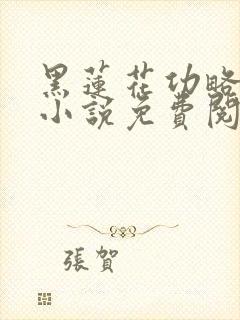 黑蓮花功略
小說免費閱
張賀